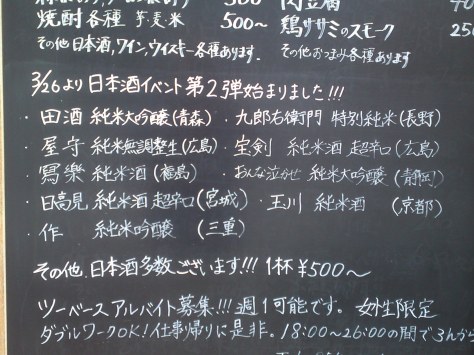 焼酎各種 芋麦米 500〜 鶏ササミのスモーク 250
その他日本酒,ワイン,ウィスキー各種あります. その他おつまみ各種あります
3/26より日本酒イベント第2弾始まりました!!!
・田酒 純米大吟醸(青森) ・九郎右衛門 特別純米(長野)
・屋守 純米無調整生(広島) ・宝剣 純米酒 超辛口(広島)
・寫樂 純米酒(福島) ・おんな泣かせ 純米大吟醸(静岡)
・日高見 純米酒 超辛口(宮城) ・玉川 純米酒 (京都)
・作 純米吟醸 (三重)
その他.日本酒多数ございます!!! 1杯¥500〜
ツーベース アルバイト募集!!! 週1可能です。 女性限定
ダブルワークOK!仕事帰りに是非。18:00〜26:00の間で3hから